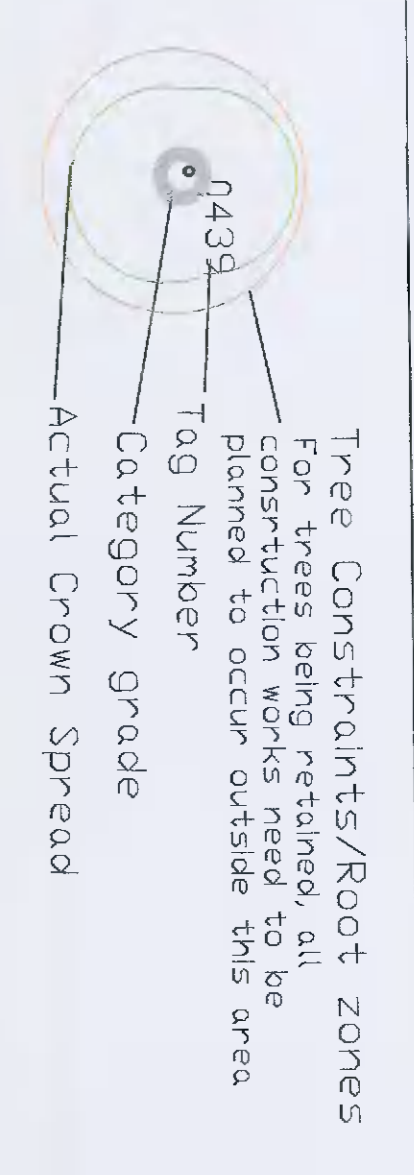 Tree Constraints/Root zones
For trees being retained, all
consrtuction works need to be
planned to occur outside this area
0439
Tag Number
Category grade
Actual Crown Spread